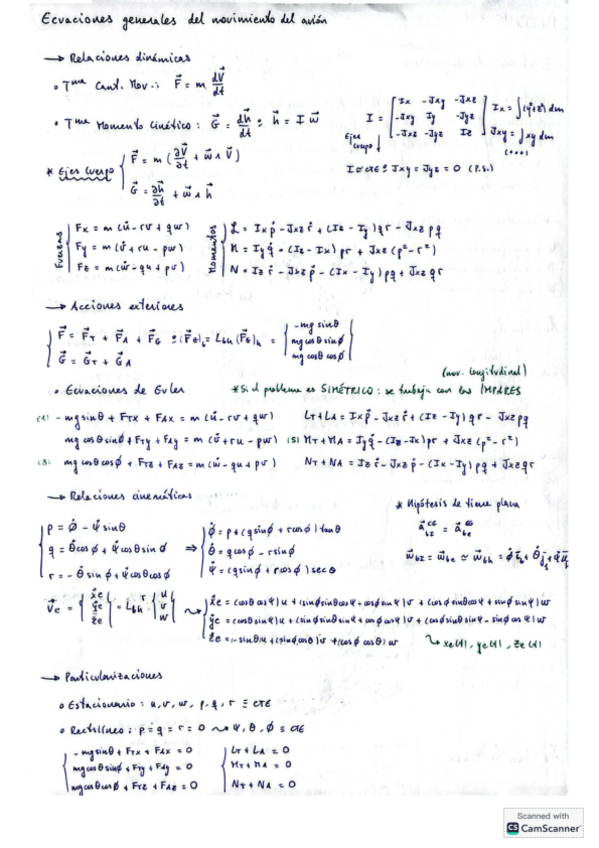 Ecuaciones generales del movimiento del avión
→ Relaciones dinámicas
∘ Tma Cant. Mov.: F⃗ = m dV⃗/dt
∘ Tma Momento Cinético: G⃗ = dh⃗/dt ; h⃗ = I ω⃗
I = [Ix -Jxy -Jxz; -Jxy Iy -Jyz; -Jxz -Jyz Iz]
Ix = ∫(y²+z²) dm
Jxy = ∫xy dm
Ejes cuerpo
Jxy = Jyz = 0 (P.S.)
* Ejes Cuerpo { F⃗ = m (∂V⃗/∂t + ω⃗ ∧ V⃗)
G⃗ = ∂h⃗/∂t + ω⃗ ∧ h⃗
Fuerzas | Fx = m (u̇ - rv + qw)
Fy = m (v̇ + ru - pw)
Fz = m (ẇ - qu + pv)
Momentos | L = Ix ṗ - Jxz ṙ + (Iz - Iy) qr - Jxz pq
M = Iy q̇ - (Iz - Ix) pr + Jxz (p² - r²)
N = Iz ṙ - Jxz ṗ - (Ix - Iy) pq + Jxz qr
→ Acciones exteriores
F⃗ = F⃗T + F⃗A + F⃗G ; (F⃗G)b = Lbh (F⃗G)h = { -mg sinθ
mg cosθ sinϕ
mg cosθ cosϕ }
G⃗ = G⃗T + G⃗A
(mov. longitudinal)
∘ Ecuaciones de Euler *Si el problema es SIMÉTRICO: se trabaja con las IMPARES
(1) -mg sinθ + FTx + FAx = m (u̇ - rv + qw) LT + LA = Ix ṗ - Jxz ṙ + (Iz - Iy) qr - Jxz pq
mg cosθ sinϕ + FTy + FAy = m (v̇ + ru - pw) (5) MT + MA = Iy q̇ - (Iz - Ix) pr + Jxz (p² - r²)
(3) mg cosθ cosϕ + FTz + FAz = m (ẇ - qu + pv) NT + NA = Iz ṙ - Jxz ṗ - (Ix - Iy) pq + Jxz qr
→ Relaciones cinemáticas
* Hipótesis de tierra plana
p = ϕ̇ - ψ̇ sinθ
q = θ̇ cosϕ + ψ̇ cosθ sinϕ
r = -θ̇ sinϕ + ψ̇ cosθ cosϕ
⇒ ϕ̇ = p + (q sinϕ + r cosϕ) tanθ
θ̇ = q cosϕ - r sinϕ
ψ̇ = (q sinϕ + r cosϕ) secθ
V⃗e = {ẋe ẏe że} = Lbh^T {u v w}
ẋe = (cosθ cosψ) u + (sinϕ sinθ cosψ - cosϕ sinψ) v + (cosϕ sinθ cosψ + sinϕ sinψ) w
ẏe = (cosθ sinψ) u + (sinϕ sinθ sinψ + cosϕ cosψ) v + (cosϕ sinθ sinψ - sinϕ cosψ) w
że = (-sinθ) u + (sinϕ cosθ) v + (cosϕ cosθ) w
xe(t), ye(t), ze(t)
→ Particularizaciones
∘ Estacionario: u, v, w, p, q, r ≡ cte
∘ Rectilíneo: p = q = r = 0 ⇝ ψ, θ, ϕ ≡ cte
-mg sinθ + FTx + FAx = 0 LT + LA = 0
mg cosθ sinϕ + FTy + FAy = 0 MT + MA = 0
mg cosθ cosϕ + FTz + FAz = 0 NT + NA = 0
Scanned with
CS CamScanner